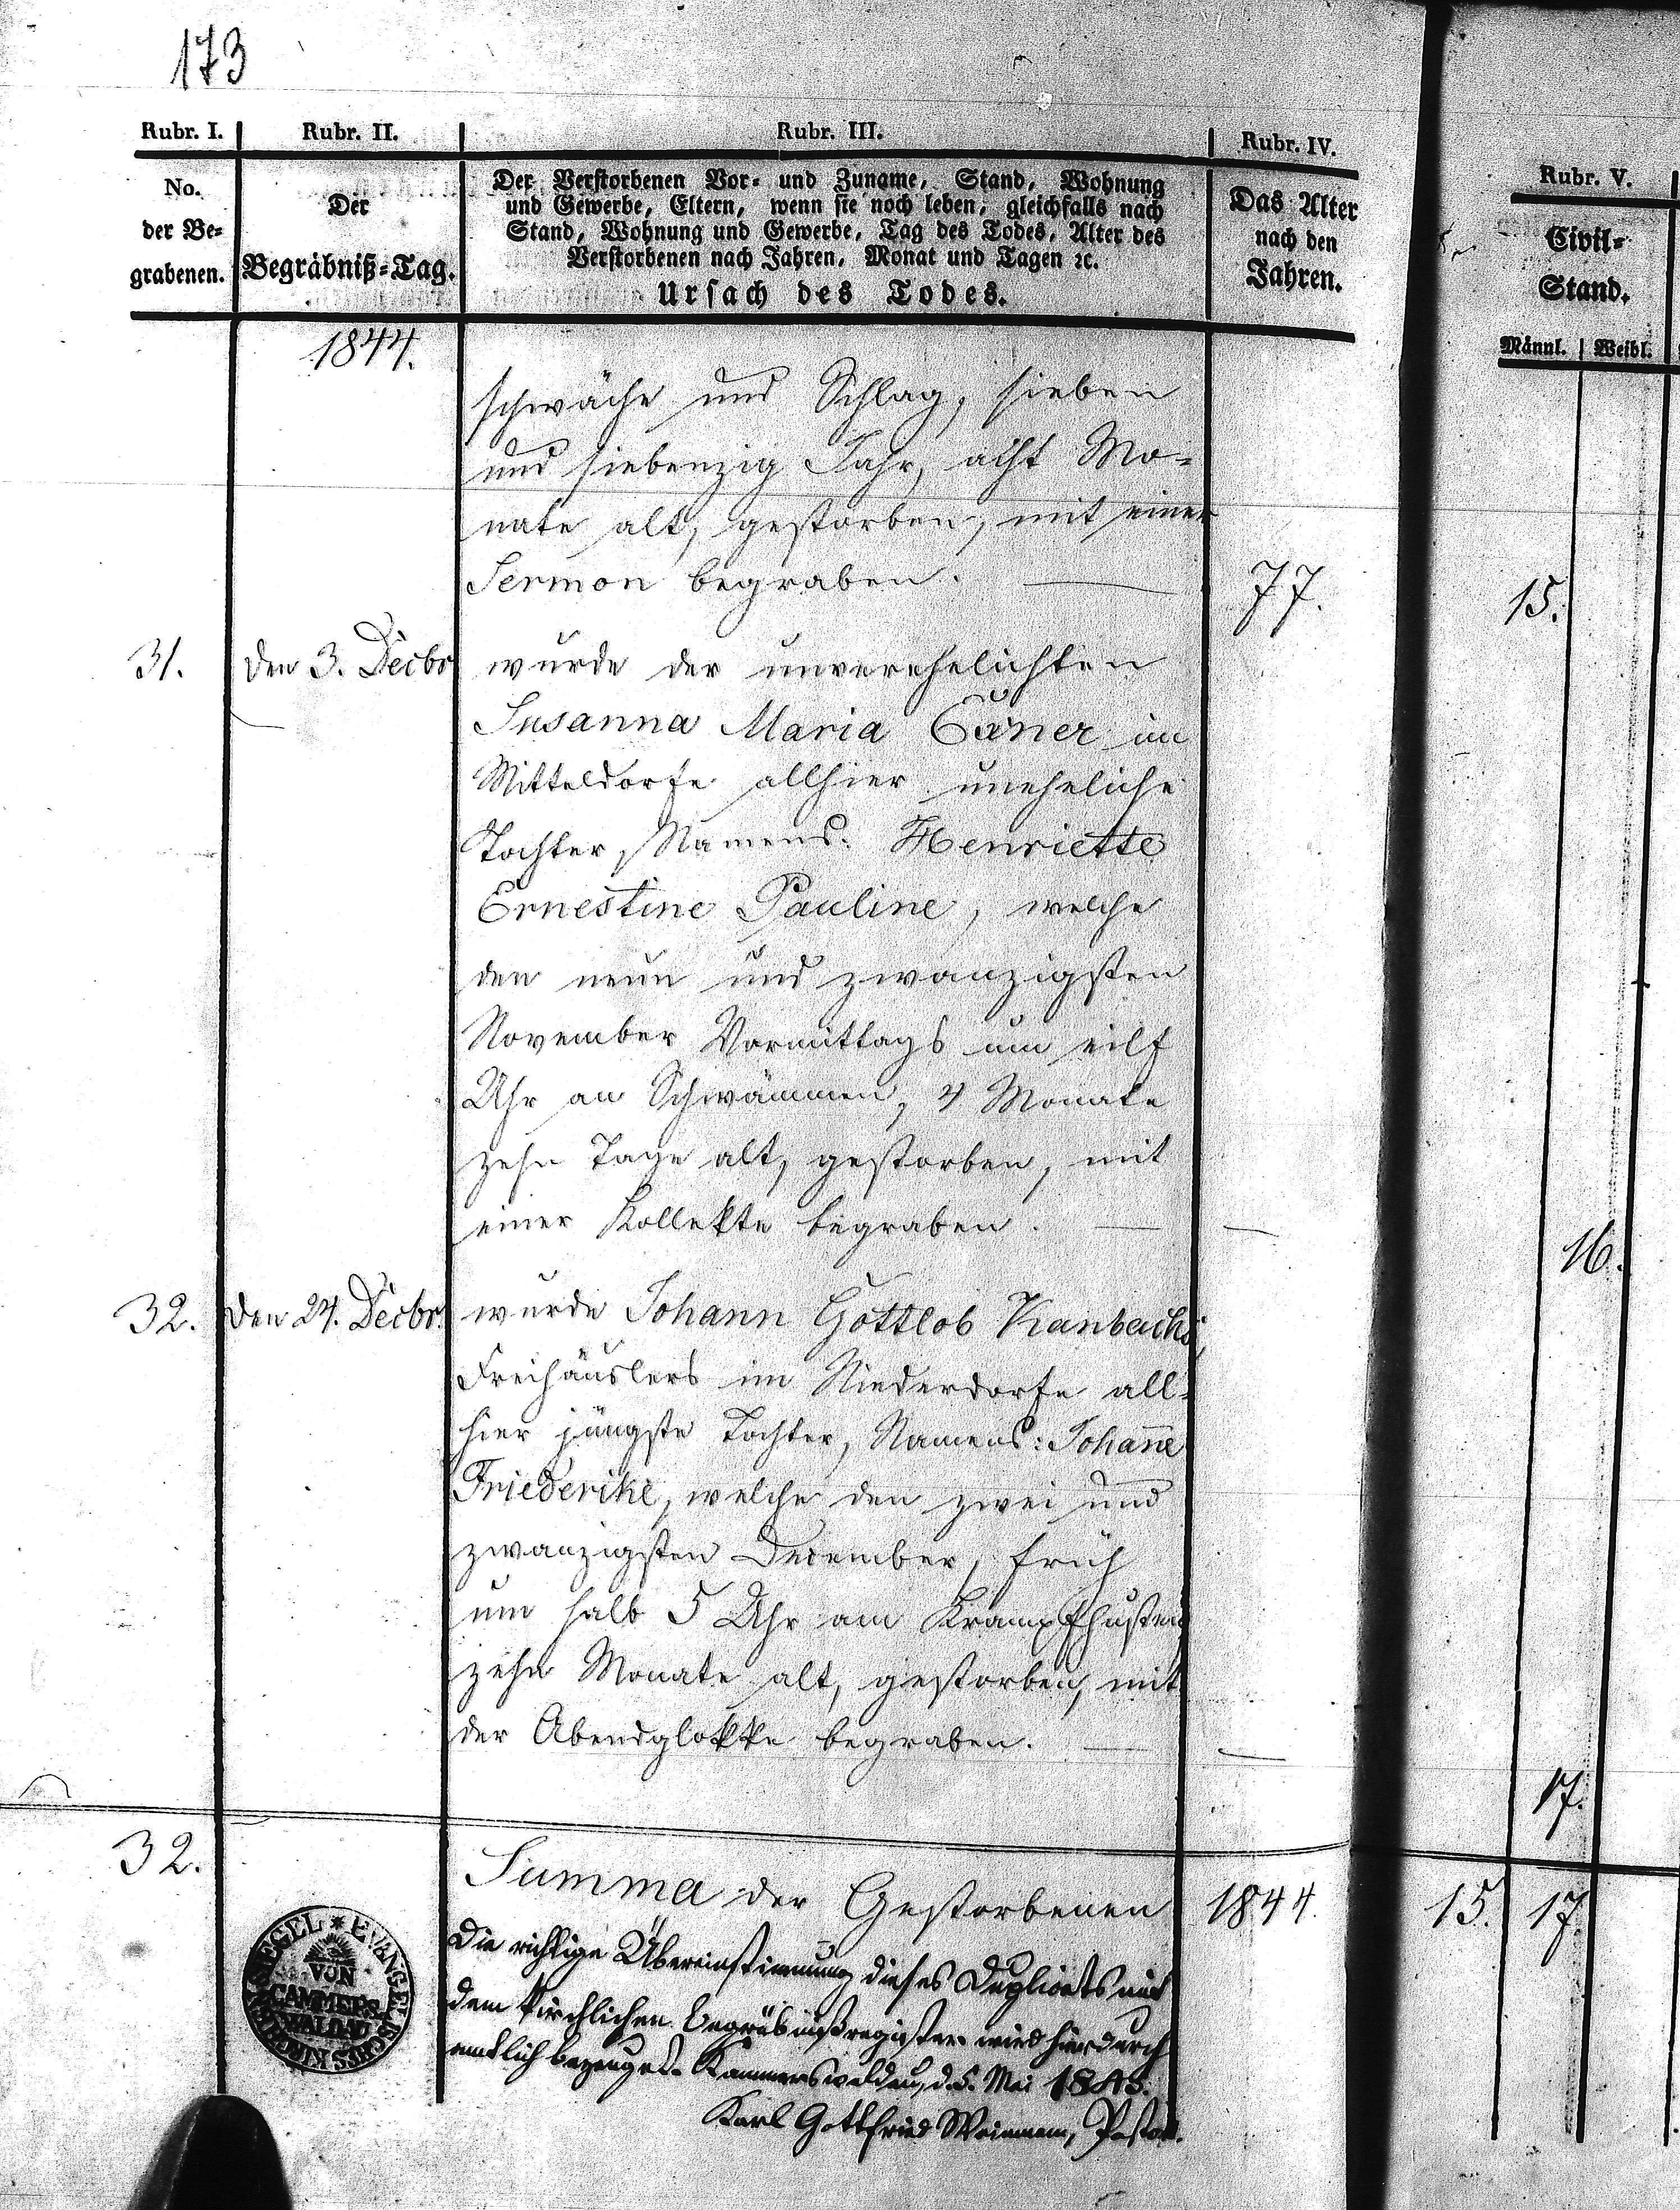 173
Rubr. I. Rubr. II. Rubr. III. Rubr. IV. Rubr. V.
No.
der Be-
grabenen.
Der
Begräbniß-Tag.
Der Verstorbenen Vor- und Zuname, Stand, Wohnung
und Gewerbe, Eltern, wenn sie noch leben, gleichfalls nach
Stand, Wohnung und Gewerbe, Tag des Todes, Alter des
Verstorbenen nach Jahren, Monat und Tagen ꝛc.
Ursach des Todes.
Das Alter
nach den
Jahren.
Civil-
Stand.
Männl. Weibl.
1844.
schwäche und Schlag, sieben
und siebenzig Jahr, acht Mo-
nate alt, gestorben, mit einer
Sermon begraben. — 77. 15.
31. den 3. Decbr wurde der unverehelichten
Susanna Maria im
Mitteldorfe allhier uneheliche
Tochter, Namens: Henriette
Ernestine Pauline, welche
den neun und zwanzigsten
November Vormittags um eilf
Uhr an Schwämmen, 4 Monate
zehn Tage alt, gestorben, mit
einer Kollekte begraben. — — 16.
32. den 24. Decbr. wurde Johann Gottlob Kanbachs,
Freihäuslers im Niederdorfe all-
hier jüngste Tochter, Namens: Johañe
Friederike, welche den zwei und
zwanzigsten December, früh
um halb 5 Uhr am Krampfhusten,
zehn Monate alt, gestorben, mit
der Abendglokke begraben. — — 17.
32. Summa der Gestorbenen 1844. 15. 17.
Die richtige Übereinstimmung dieses Duplicats mit
dem kirchlichen Begräbnißregister wird hierdurch
amtlich bezeuget. Kammerswaldau, d. 5. Mai 1845.
Karl Gottfried Weinmann, Pastor.
EVANGELISCHES KIRCHENSIEGEL
VON
CAMMERS
WALDAU